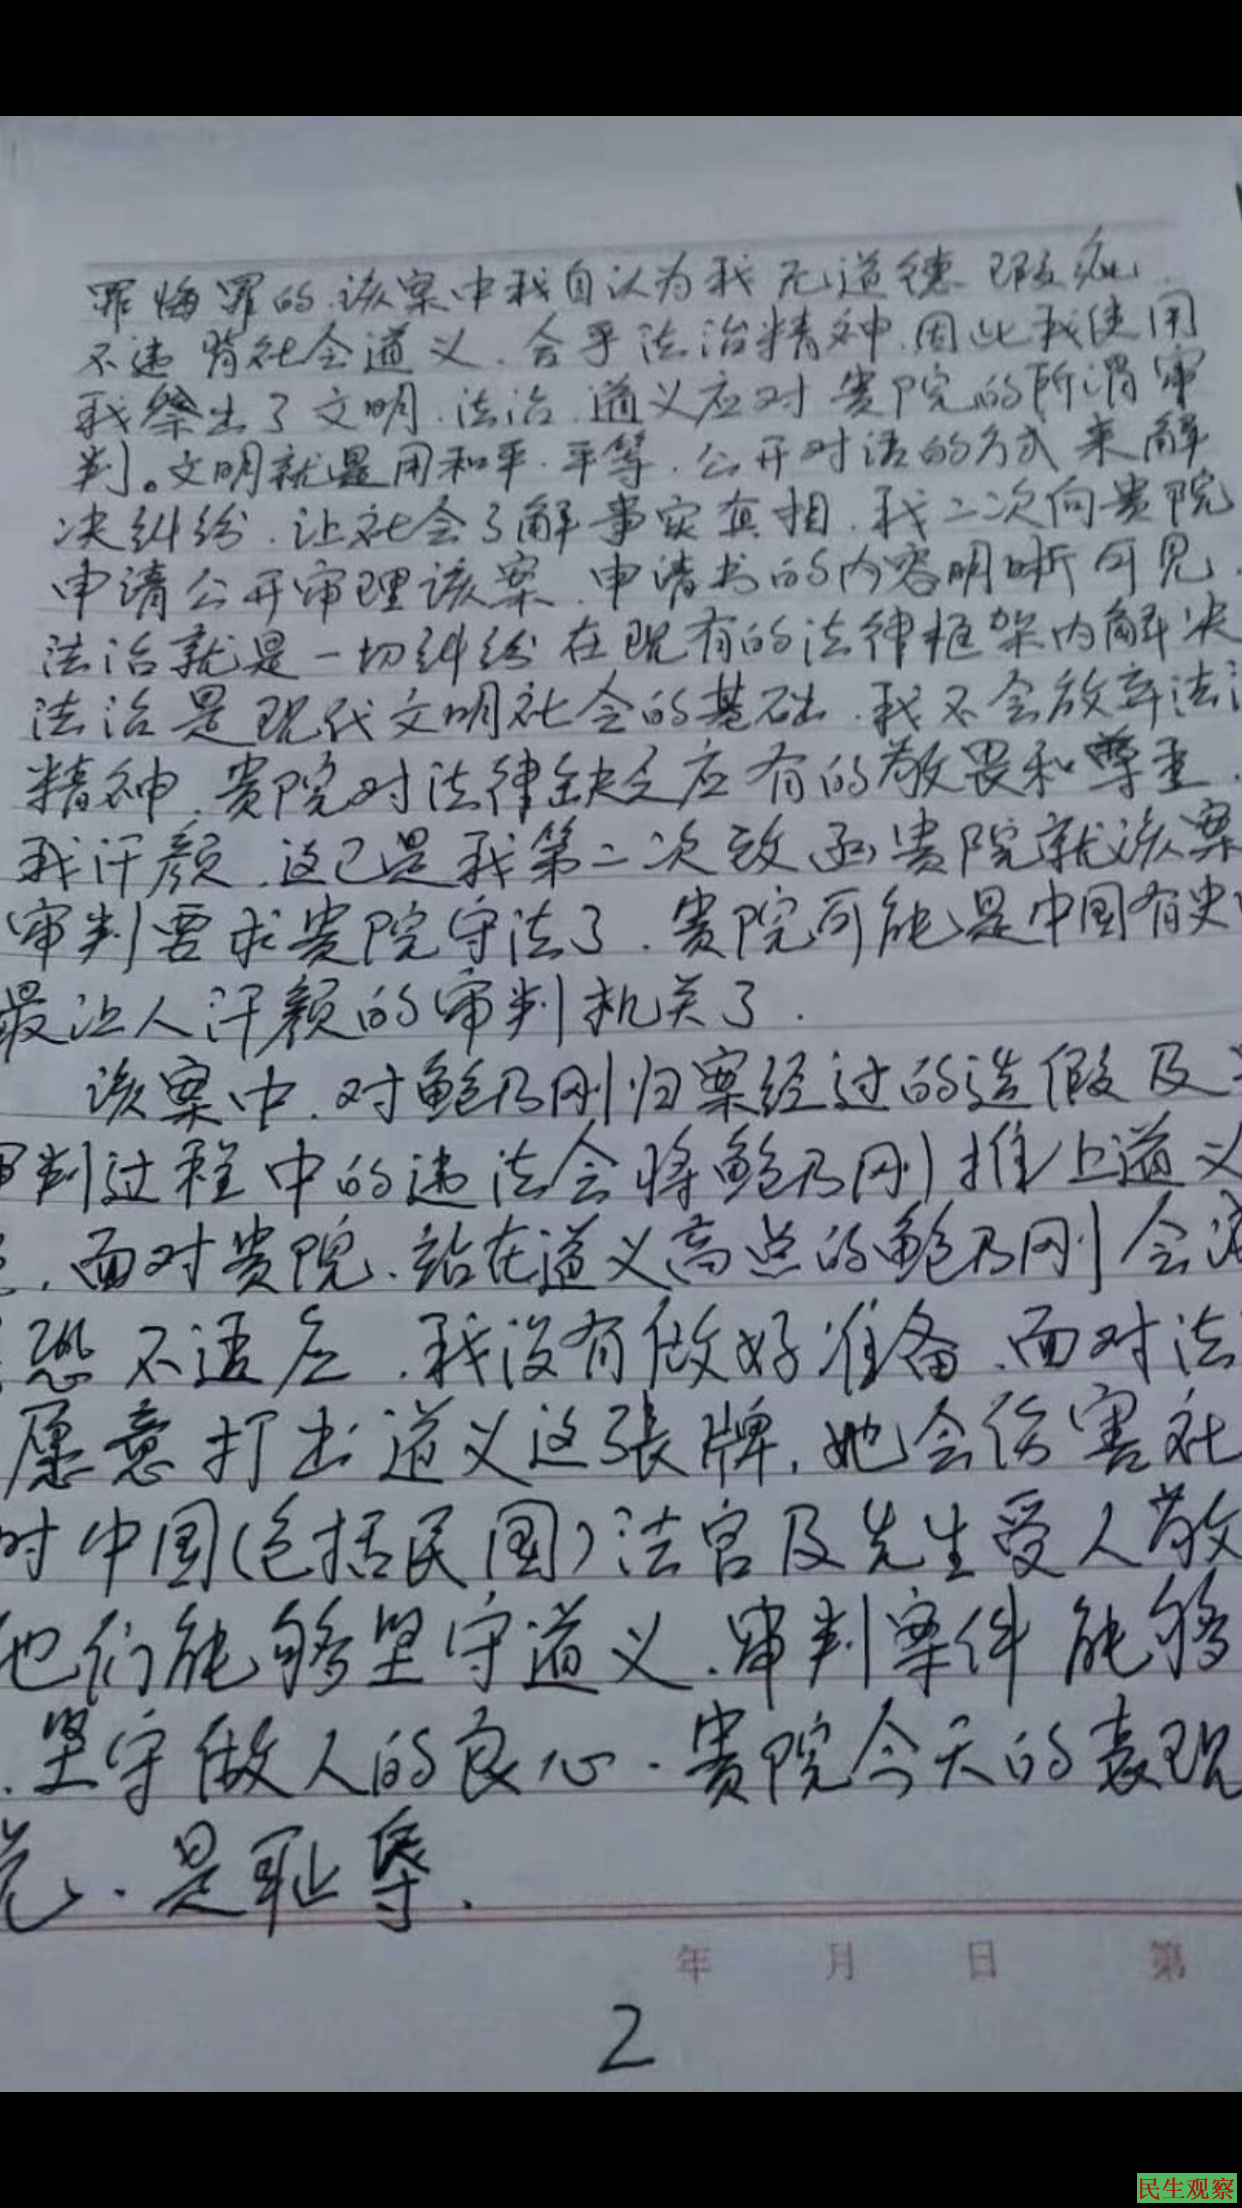 罪悔罪的.该案中我自认为我无道德瑕疵.
不违背社会道义.合乎法治精神.因此我使用
我祭出了文明.法治.道义应对贵院的所谓审
判。文明就是用和平.平等.公开对话的方式来解
决纠纷.让社会了解事实真相.我二次向贵院
申请公开审理该案.申请书的内容明晰可见.
法治就是一切纠纷在现有的法律框架内解决
法治是现代文明社会的基础.我不会放弃法治
精神.贵院对法律缺乏应有的敬畏和尊重.
我汗颜.这已是我第二次致函贵院就该案
审判要求贵院守法了.贵院可能是中国有史
最让人汗颜的审判机关了.
该案中.对鲍乃刚归案经过的造假及
审判过程中的违法会将鲍乃刚推上道义
.面对贵院.站在道义高点的鲍乃刚会
恐不适应.我没有做好准备.面对法
愿意打出道义这張牌.她会伤害社
时中国(包括民国)法官及先生受人敬
他们能够坚守道义.审判案件能够
.坚守做人的良心.贵院今天的表现
.是耻辱.
年 月 日 第
2
民生观察